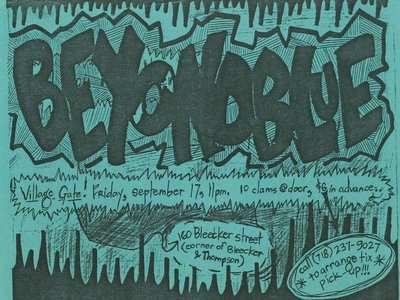 BEYONDBLUE
Village Gate! Friday, september 17, 11pm. 10 clams @door, $8 in advance...
160 Bleecker street
(corner of Bleecker
& Thompson)
call (718) 237-9027
* to arrange tix *
pick-up!!!